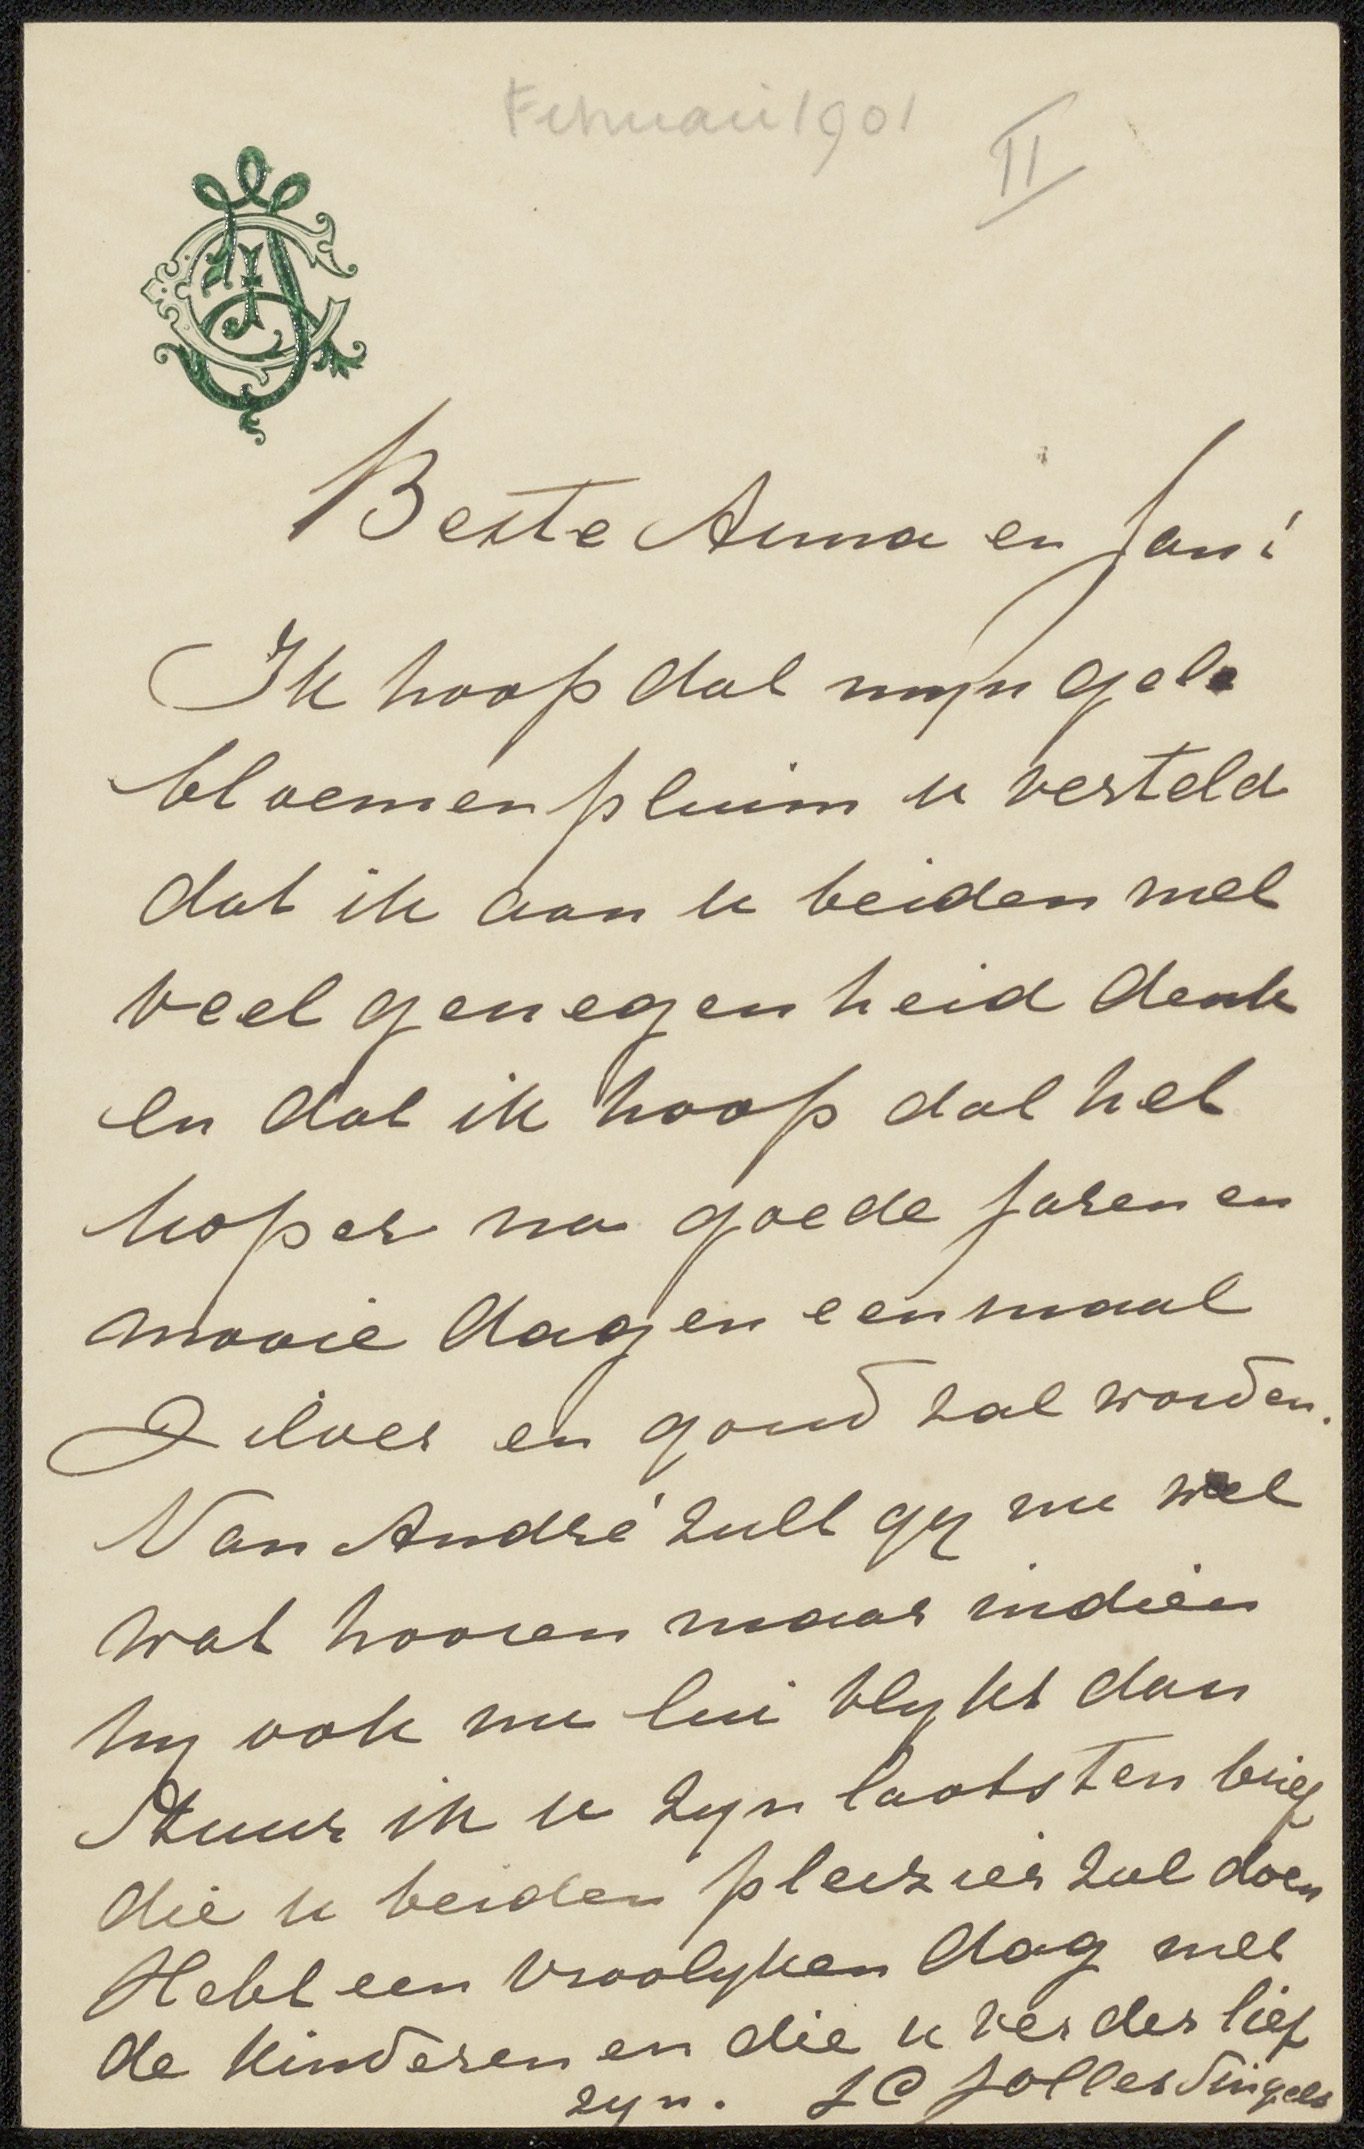 Februari 1901
II
Beste Anna en Jan!
Ik hoop dat mijn gele
bloemenpluim u verteld
dat ik aan u beiden met
veel genegenheid denk
en dat ik hoop dat het
koper na goede jaren en
mooie dagen eenmaal
Zilver en goud zal worden.
Van André zult gij nu wel
wat hooren maar indien
hij ook nu lui blykt dan
stuur ik u zyn laatsten brief
die u beiden pleizier zal doen
Hebt een vroolyken dag met
de kinderen en die u verder lief
zyn. J C Jolles Singels